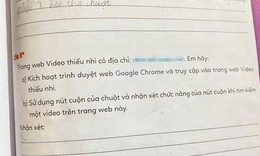 Trang web Video thiếu nhi có địa chỉ: . Em hãy:
a) Kích hoạt trình duyệt web Google Chrome và truy cập vào trang web Video
thiếu nhi.
b) Sử dụng nút cuộn của chuột và nhận xét chức năng của nút cuộn khi tìm kiếm
một video trên trang web này.
Nhận xét: